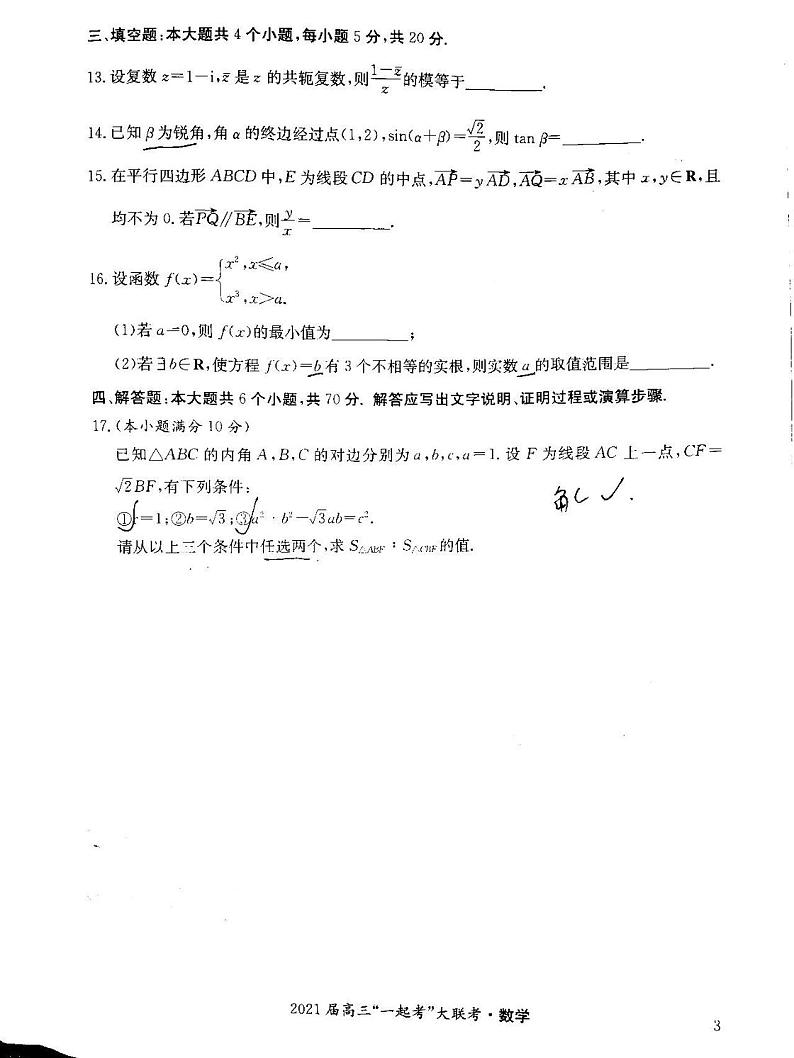 三、填空题:本大题共 4 个小题,每小题 5 分,共 20 分.
13.设复数 z=1-i,z̄ 是 z 的共轭复数,则(1-z̄)/z的模等于________.
14.已知 β 为锐角,角 α 的终边经过点(1,2),sin(α+β)=√2/2,则 tan β=________.
15.在平行四边形 ABCD 中,E 为线段 CD 的中点,AP→=yAD→,AQ→=xAB→,其中 x,y∈R,且
均不为 0.若PQ→∥BE→,则y/x=________.
16.设函数 f(x)={x²,x≤a,
x³,x>a.
(1)若 a=0,则 f(x)的最小值为________;
(2)若∃b∈R,使方程 f(x)=b 有 3 个不相等的实根,则实数 a 的取值范围是________.
四、解答题:本大题共 6 个小题,共 70 分. 解答应写出文字说明、证明过程或演算步骤.
17.(本小题满分 10 分)
已知△ABC 的内角 A,B,C 的对边分别为 a,b,c,a=1. 设 F 为线段 AC 上一点,CF=
√2BF,有下列条件:
角C ✓.
①=1;②b=√3;③a² b²-√3ab=c².
请从以上三个条件中任选两个,求 S△ABF : S△CBF的值.
2021 届高三“一起考”大联考·数学
3